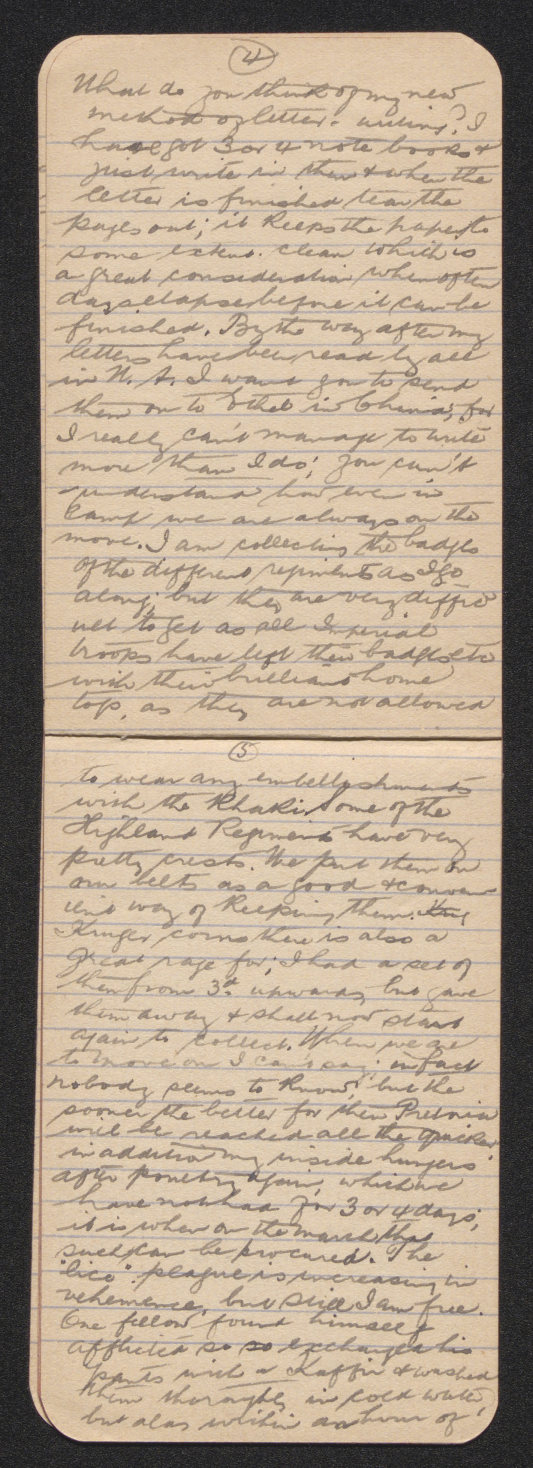 4
What do you think of my new
method of letter-writing? I
have got 3 or 4 note books &
just write in them & when the
letter is finished tear the
pages out; it keeps the paper to
some extent clean which is
a great consideration when often
days elapse before it can be
finished. By the way after my
letters have been read by all
in N. A. I want you to send
them on to Ethel in China; for
I really can't manage to write
more than I do; you can't
understand how even in
camp we are always on the
move. I am collecting the badges
of the different regiments as I go
along; but they are very diffic
ult to get as all Imperial
troops have left their badges etc
with their brilliant home
togs, as they are not allowed
5
to wear any embellyshments
with the Khaki. Some of the
Highland Regiments have very
pretty crests. We put them on
our belts as a good & conven-
ient way of keeping them. Krug
Kruger coins there is also a
great rage for; I had a set of
them from 3d. upwards, but gave
them away & shall now start
again to collect. When we are
to move on I can't say; in fact
nobody seems to know, but the
sooner the better for then Pretoria
will be reached all the quicker.
in addition my inside hungers
after poultry again, which we
have not had for 3 or 4 days;
it is when on the march that
such can be procured. The
"lice" plague is increasing in
vehemence, but still I am free.
One fellow found himself
afflicted so so exchanged his
pants with a Kaffir & washed
them thoroughly in cold water,
but alas within an hour of